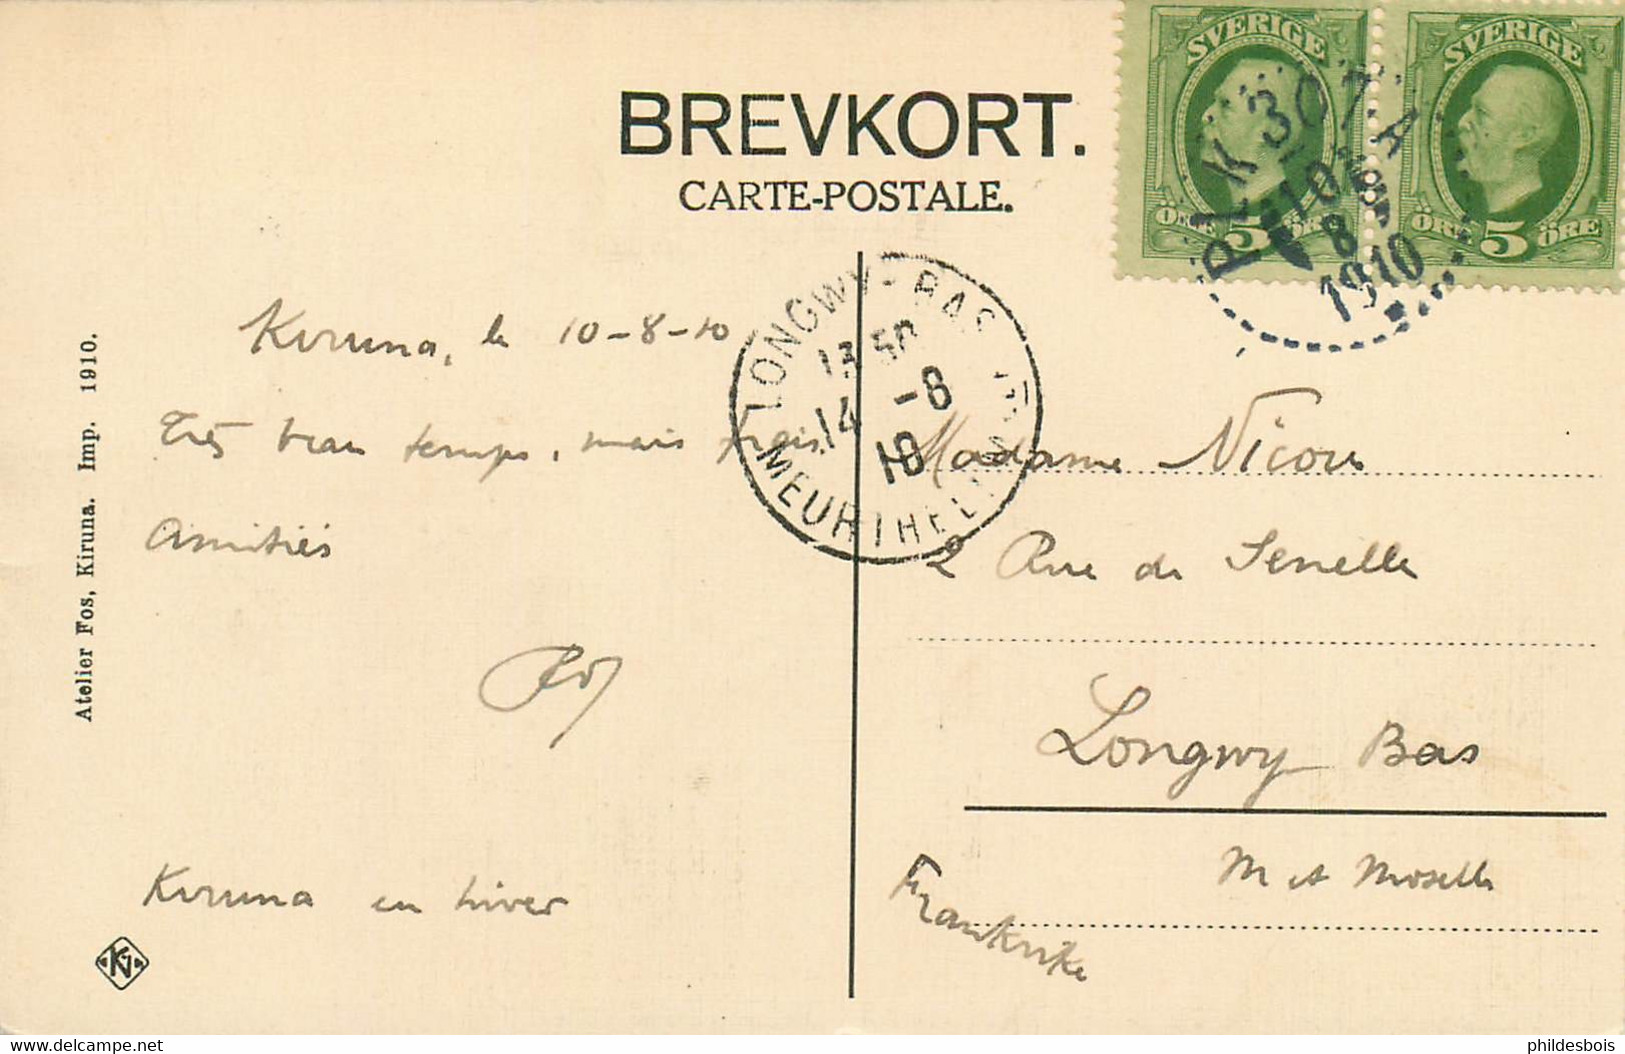 BREVKORT.
CARTE-POSTALE.
SVERIGE
5
ÖRE
SVERIGE
ÖRE 5 ÖRE
307 A
10
8
1910
LONGWY-BAS
13 50
14 -8
10
Kiruna, le 10-8-10
Très beau temps, mais frais.
Amitiés
Kiruna en hiver
Madame Nicou
2 Rue de Senelle
Longwy Bas
M et Moselle
Frankrike
Atelier Fos, Kiruna. Imp. 1910.
delcampe.net
phildesbois